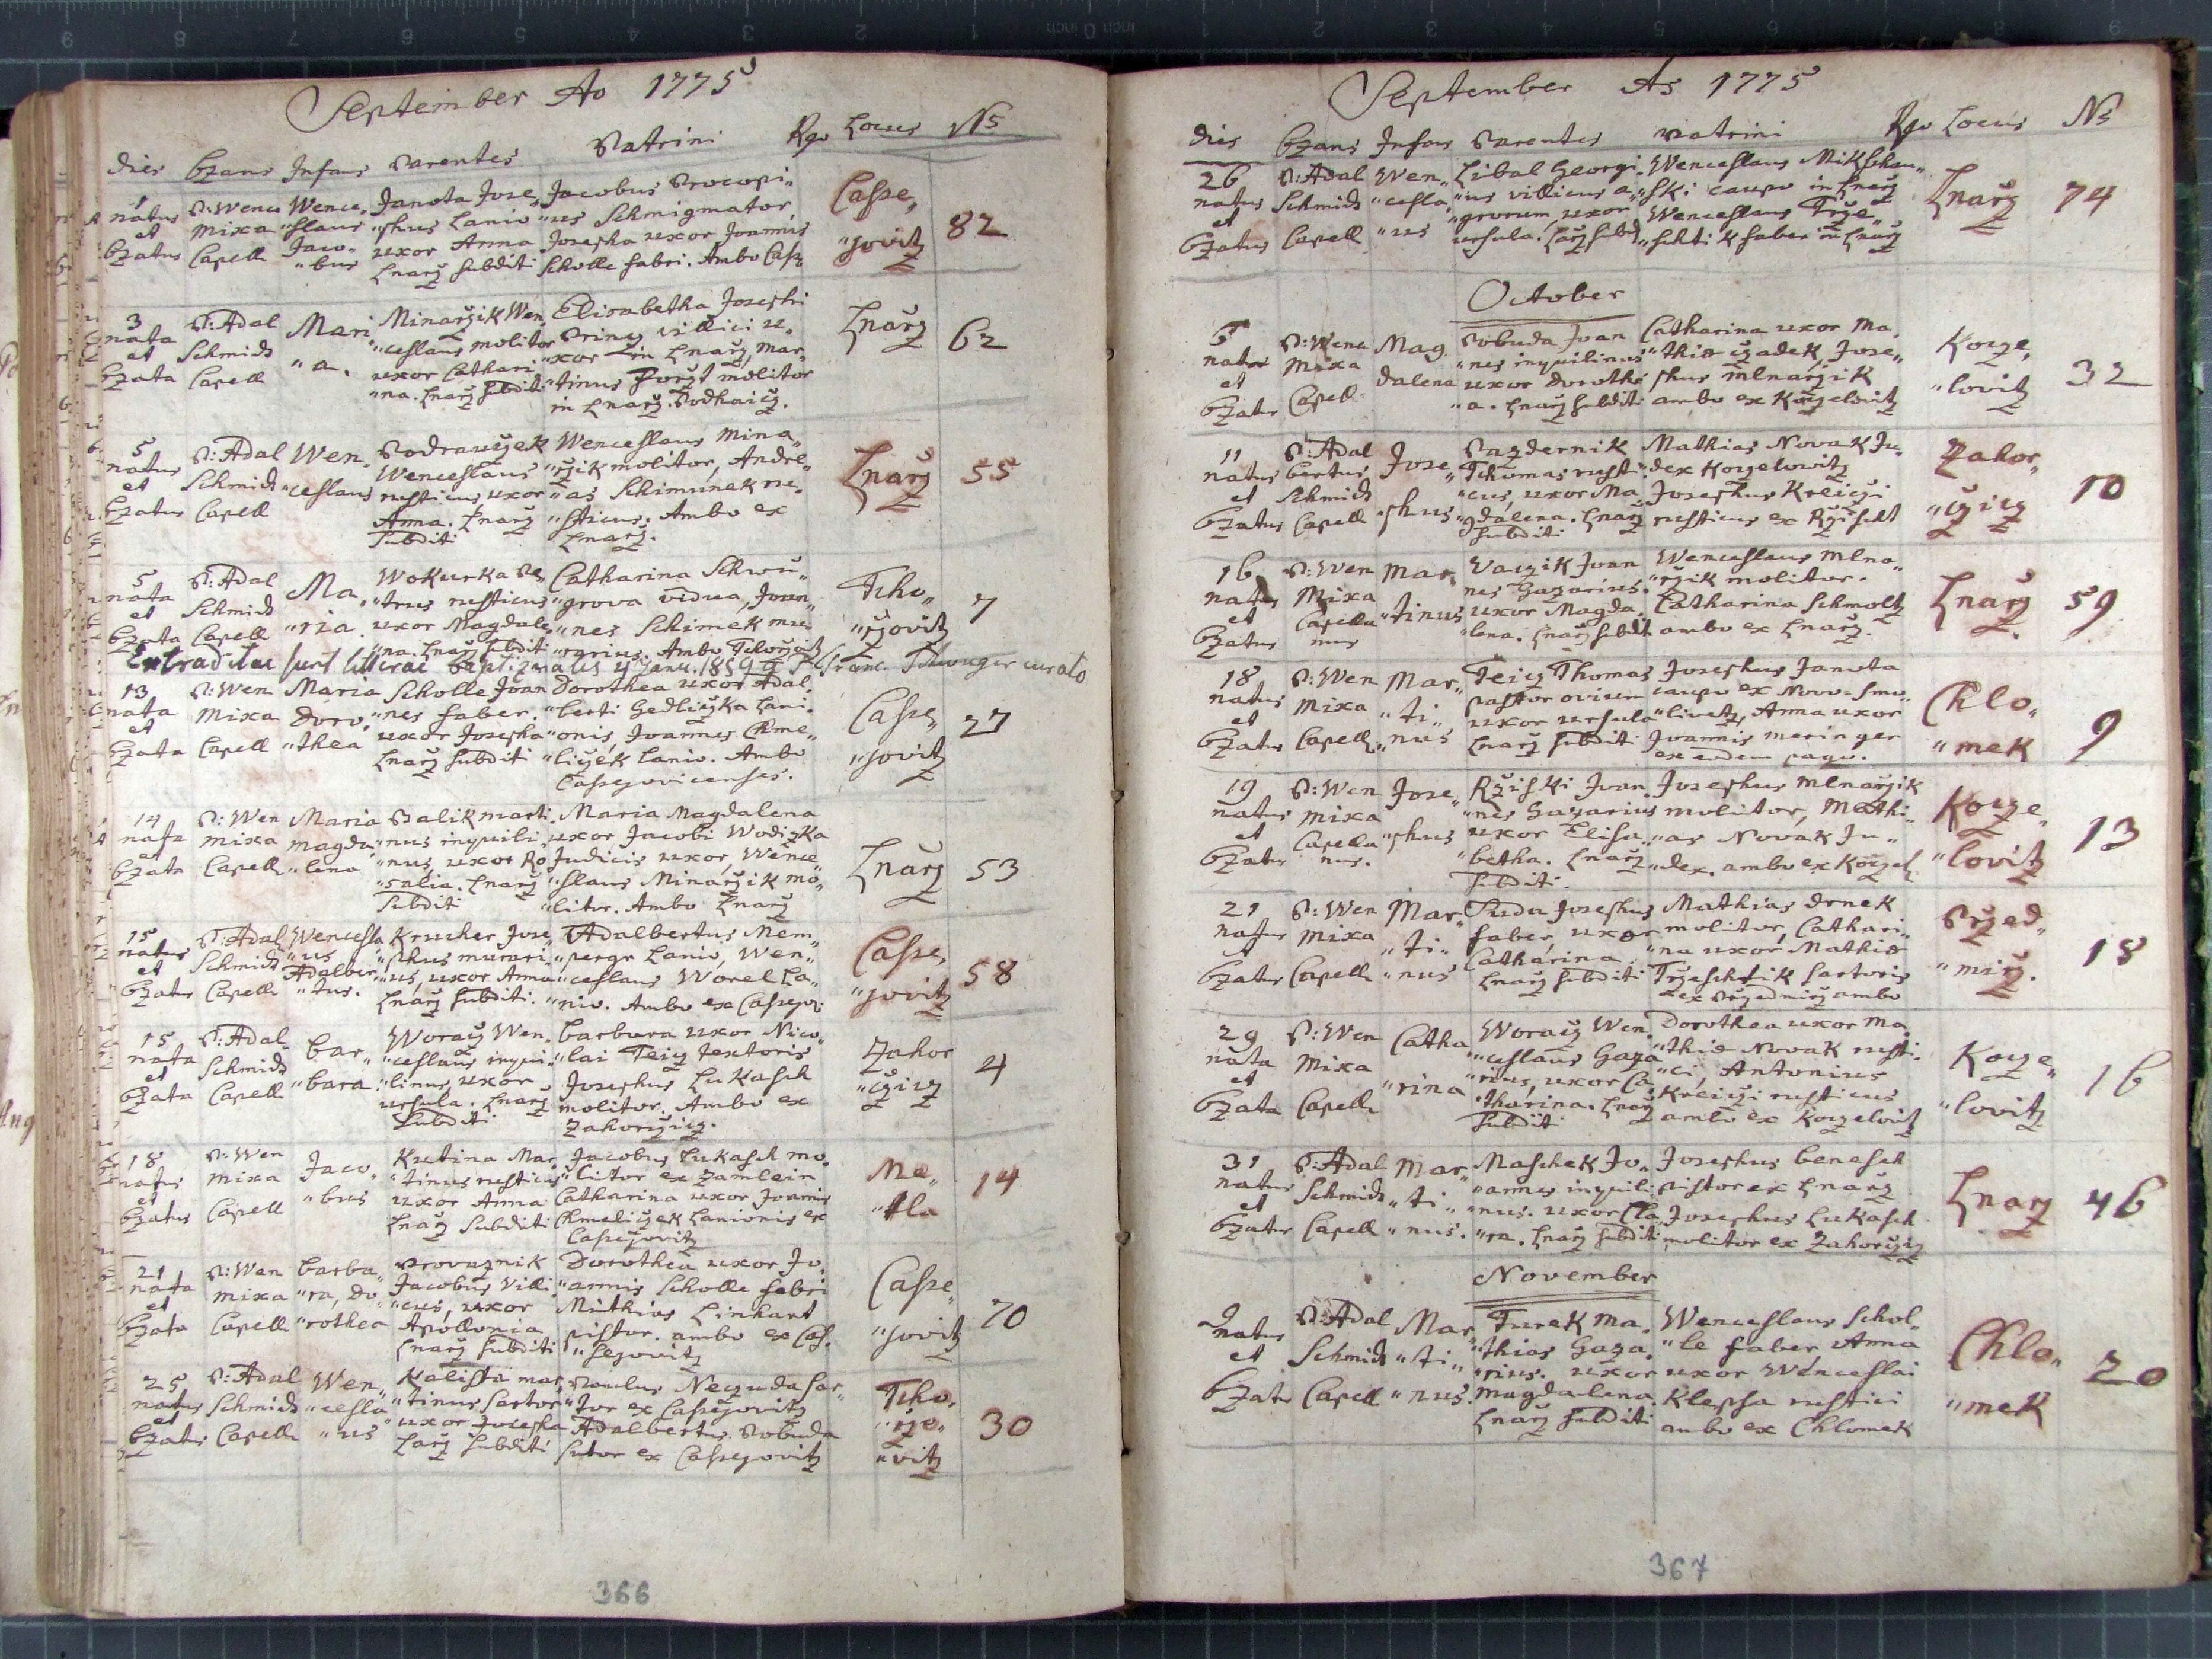 September Ao 1775
dies bzans Infans Parentes Patrini Rgo Locus No
1 natus et bzatus
P: Wence Mixa Capell
Wence„ „slaus Jaco„ „bus
Janota Jose„ „phus Lanio uxor Anna Lnarz subditi
Jacobus Procopi„ „us Schmigmator, Josepha uxor Joannis Scholle fabri. Ambo Cass
Casse„ „jovitz
82
3 nata et bzata
P: Adal Schmidt Capell
Mari„ „a.
Minarzik Wen „ceslaus molitor uxor Cathari„ „na. Lnarz subditi
Elisabetha Josephi Princz villici u„ „xor in Lnarz, Mar„ „tinus molitor in Lnarz. Podhaicz.
Lnarz
62
5 natus et bzatus
P: Adal Schmidt Capell
Wen„ „ceslaus
Podrauczek Wenceslaus rusticus uxor Anna. Lnarz subditi
Wenceslaus Mina„ „rzik molitor, Andre„ „as Schimunek ru„ „sticus. Ambo ex Lnarz.
Lnarz
55
5 nata et bzata
P: Adal Schmidt Capell
Ma„ „ria
Wokurka Pe„ „trus rusticus uxor Magdale„ „na. Lnarz subditi
Catharina Schwu„ „grova vidua, Joan„ „nes Schimek mu„ „rarius. Ambo Tchorzovitz
Tcho„ „rzovitz
7
Extraditae sunt litterae baptizmales 4 Janu. 1859 Franc. curato
13 nata et bzata
P: Wen Mixa Capell
Maria Doro„ „thea
Scholle Joan „nes faber. uxor Josepha Lnarz subditi
Dorothea uxor Adal„ „berti Hedliczka Lani„ „onis, Joannes Chme„ „liczek Lanio. Ambo Cassejovicenses.
Casse„ „jovitz
27
14 nata et bzata
P: Wen Mixa Capell
Maria Magda„ „lena
Palik Marti„ „nus inquili„ „nus, uxor Ro„ „salia. Lnarz subditi
Maria Magdalena uxor Jacobi Wodizka Judicis uxor, Wence„ „slaus Minarzik mo„ „litor. Ambo Lnarz
Lnarz
53
15 natus et bzatus
P: Adal Schmidt Capell
Wencesla „us Adalber„ „tus.
Krucher Jose „phus murari„ „us, uxor Anna Lnarz subditi.
Adalbertus Nem„ „pergr Lanio, Wen„ „ceslaus Worel La„ „nio. Ambo ex Cassejov:
Casse„ „jovitz
58
15 nata et bzata
P: Adal Schmidt Capell
Bar„ „bara
Woracz Wen„ „ceslaus inqui„ „linus, uxor Ursula. Lnarz subditi
Barbara uxor Nico„ „lai Teicz textoris Josephus Lukasch molitor. Ambo ex Zahorzicz.
Zahor „czicz
4
18 natus et bzatus
P: Wen Mixa Capell
Jaco„ „bus
Kutina Mar„ „tinus rusticus uxor Anna Lnarz subditi
Jacobus Lukasch mo„ „litor ex Zamlein Catharina uxor Joannis Chmeliczek Lanionis ex Cassejovitz
Me„ „tla
14
21 nata et bzata
P: Wen Mixa Capell
Barba„ „ra, Do „rothea
Provaznik Jacobus Villi„ „cus, uxor Apollonia Lnarz subditi
Dorothea uxor Jo„ „annis Scholle fabri Mathias Linhart pistor. ambo ex Cas„ „sejovitz
Casse„ „jovitz
70
25 natus et bzatus
P: Adal Schmidt Capell
Wen„ „cesla „us
Kalista Mar„ „tinus sartor uxor Josepha Lnarz subditi
Paulus Neczuda sar„ „tor ex Cassejovitz Adalbertus Pobuda sutor ex Cassejovitz
Tcho„ „rzo„ „vitz
30
366
September Ao 1775
dies bzans Infans Parentes Patrini Rgo Locus No
26 natus et bzatus
P: Adal Schmidt Capell
Wen„ „cesla „us
Libal Georgi„ „us villicus a„ „grorum, uxor Ursula. Lnarz subdi
Wenceslaus Mikschau„ „ski caupo in Lnarz Wenceslaus Trze„ „schtik faber in Lnarz
Lnarz
74
October
nata et bzata
P: Wenc Mixa Capell
Mag dalena
Pobuda Joan „nes inquilinus uxor Dorothe „a. Lnarz subditi
Catharina uxor Ma„ „thiae Czadek, Jose„ phus Mlnarzik ambo ex Kozelovitz
Koze„ „lovitz
32
11 natus et bzatus
P: Adal bertus Schmidt Capell
Jose„ „phus
Pazdernik Thomas rusti„ „cus, uxor Ma„ „gdalena. Lnarz subditi
Mathias Novak Ju„ „dex Kozelowitz Josephus Kreiczi rusticus ex Rzischt
Zahor„ „czicz
10
16 natus et bzatus
P: Wen Mixa Capella nus
Mar„ „tinus
Vaczik Joan nes Gazarius. uxor Magda„ „lena. Lnarz subdit
Wenceslaus Mlna„ „rzik molitor. Catharina Schmoltz ambo ex Lnarz.
Lnarz
59
18 natus et bzatus
P: Wen Mixa Capell
Mar„ „ti„ „nus
Teicz Thomas pastor ovium uxor Ursula Lnarz subditi
Josephus Janota caupo ex Novo-Smo„ „livetz, Anna uxor Joannis Meringer ex eodem pago.
Chlo„ „mek
9
19 natus et bzatus
P: Wen Mixa Capella nus.
Jose„ „phus
Rziski Joan„ „nes Gazarius uxor Elisa„ „betha. Lnarz subditi.
Josephus Mlnarzik molitor, Mathi„ „as Novak Ju„ „dex. ambo ex Kozel.
Koze„ „lovitz
13
21 natus et bzatus
P: Wen Mixa Capell
Mar„ „ti„ „nus
Duda Josephus faber, uxor Catharina. Lnarz subditi
Mathias Drnek molitor, Cathari„ „na uxor Mathiae Trzeschtik sartoris ex Przedmirz ambo
Przed„ „mirz.
18
29 nata et bzata
P: Wen Mixa Capell
Catha „rina
Woracz Wen„ „ceslaus Gaza „rius, uxor Ca„ „tharina. Lnarz subditi
Dorothea uxor Ma„ „thiae Novak rusti„ „ci, Antonius Kreiczi rusticus ambo ex Kozelovitz
Koze„ „lovitz
16
31 natus et bzatus
P: Adal Schmidt Capell
Mar„ „ti„ „nus.
Maschek Jo„ „annes inquili „nus. uxor Cla„ „ra. Lnarz subditi
Josephus Benesch pistor ex Lnarz Josephus Lukasch molitor ex Zahorczicz
Lnarz
46
November
2 natus et bzatus
P: Adal Schmidt Capell
Mar„ „ti„ „nus.
Turek Ma„ „thias Gaza„ „rius. uxor Magdalena. Lnarz subditi
Wenceslaus Schol„ „le faber Anna uxor Wenceslai Klepsa rustici ambo ex Chlomek
Chlo„ „mek
20
367